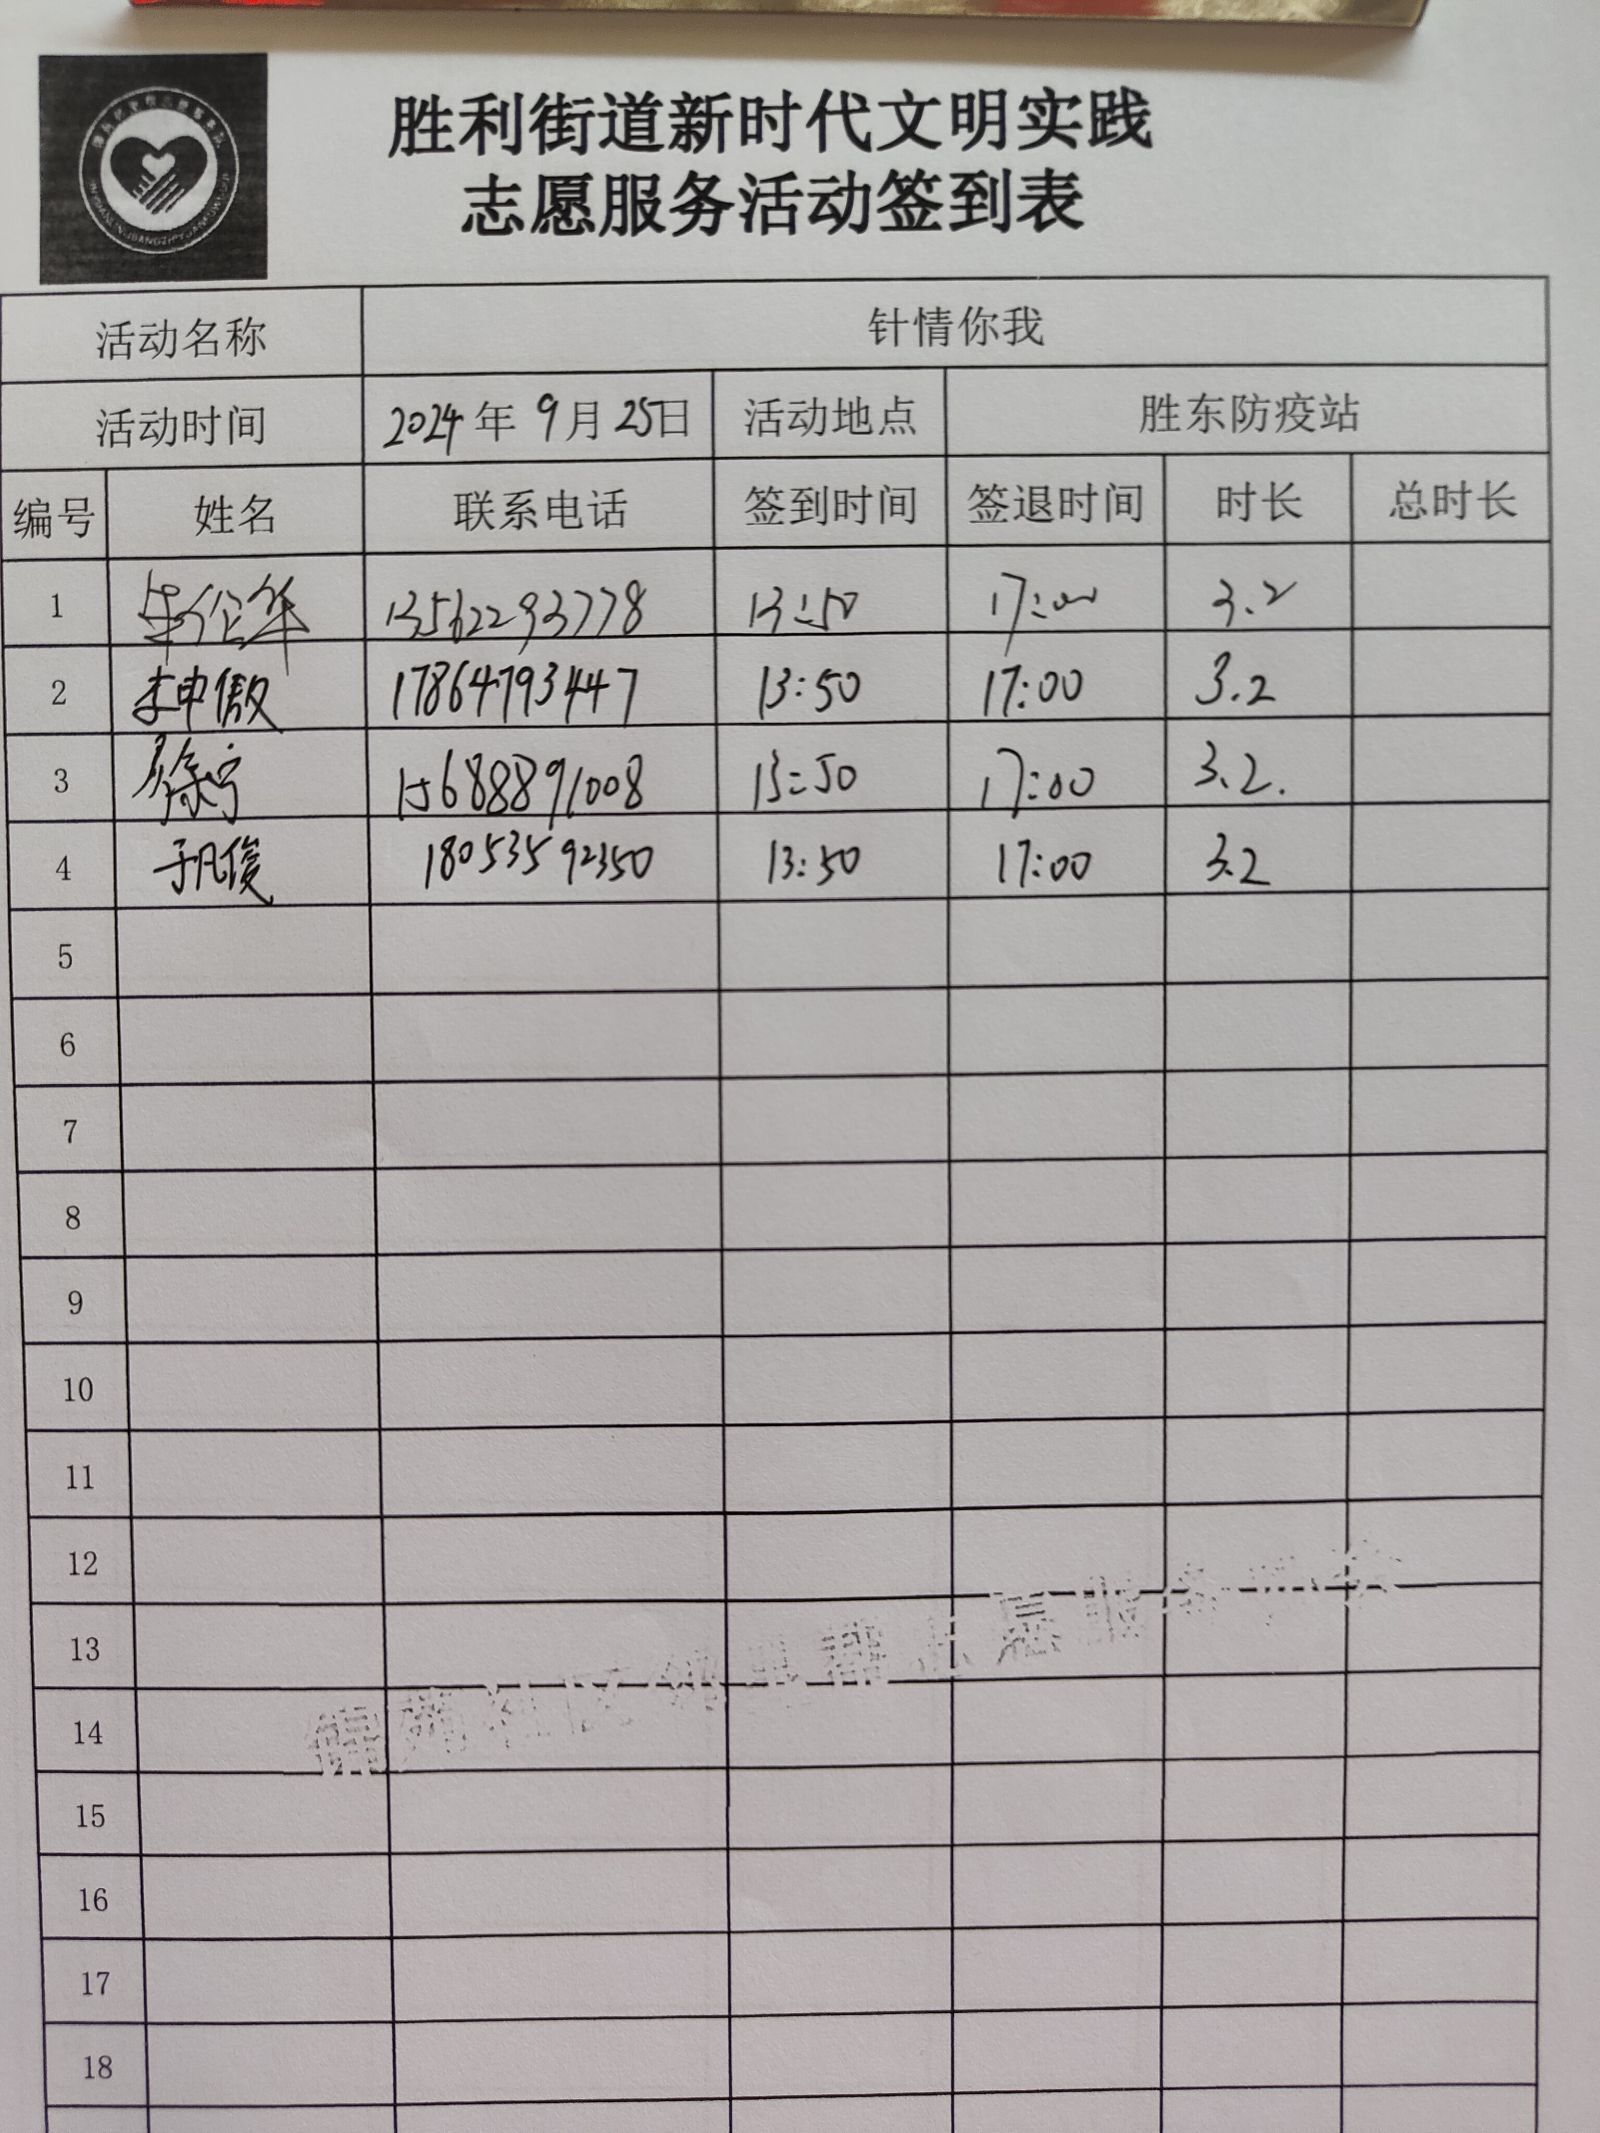 胜利街道新时代文明实践
志愿服务活动签到表
活动名称 针情你我
活动时间 2024年 9月 25日 活动地点 胜东防疫站
编号 姓名 联系电话 签到时间 签退时间 时长 总时长
1 13562293778 13:50 17:00 3.2
2 李申傲 17864793447 13:50 17:00 3.2
3 徐宁 15688891008 13:50 17:00 3.2.
4 于凡俊 18053592350 13:50 17:00 3.2
5
6
7
8
9
10
11
12
13
14
15
16
17
18